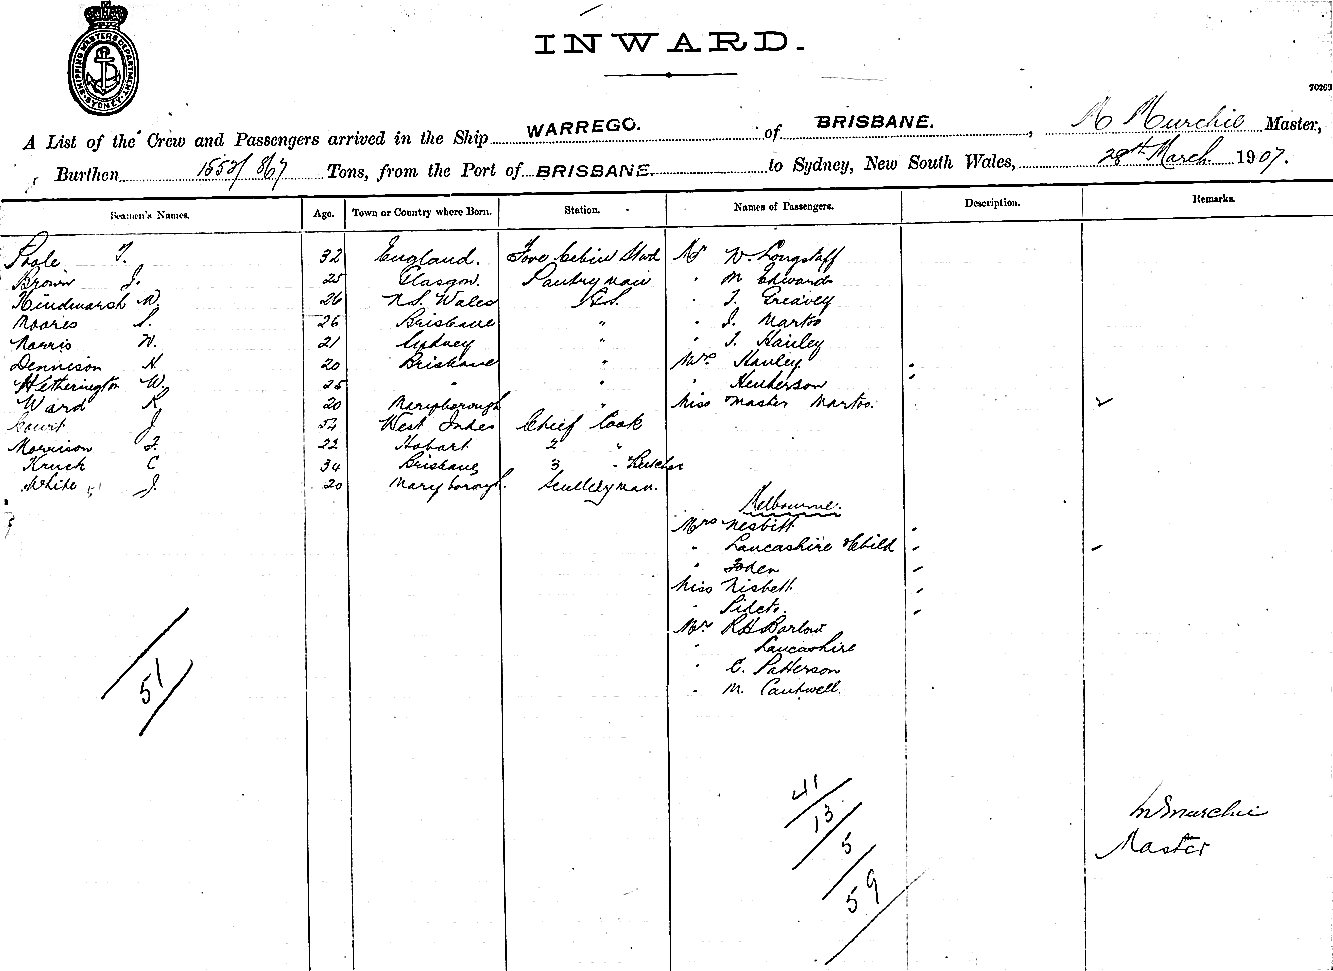 SHIPPING MASTERS DEPARTMENT SYDNEY
INWARD.
70263
A List of the Crew and Passengers arrived in the Ship WARREGO. of BRISBANE. , M Murchie Master,
Burthen 1552/867 Tons, from the Port of BRISBANE. to Sydney, New South Wales, 28th March 1907.
Seamen's Names. Age. Town or Country where Born. Station. Names of Passengers. Description. Remarks.
T. 32 England. Fore Cabin Stwd Mr W Longstaff
Brown J. 25 Glasgow. Pantryman " M Edwards
Hindmarsh W. 26 N.S. Wales " T. Greavey
Moores S. 26 Brisbane " " J. Martos
Norris W. 21 Sydney " " T. Hanley
Dennison H 20 Brisbane " Mrs Hanley
Hetherington W. 25 " " " Henderson
Ward R 20 Maryborough " Miss Master Martos.
Court J 54 West Indes Chief Cook
Morrison F. 22 Hobart 2 "
Kruck C 34 Brisbane 3 " Butcher
White J. 20 Maryborough. Sculleryman.
Melbourne.
Mrs Nesbitt
" Lancashire & Child
" Foden
Miss Nisbett
"
Mr RH Barlow
" Lancashire
" C. Patterson
" M. Cantwell.
51
41
13
5
59
M Murchie
Master